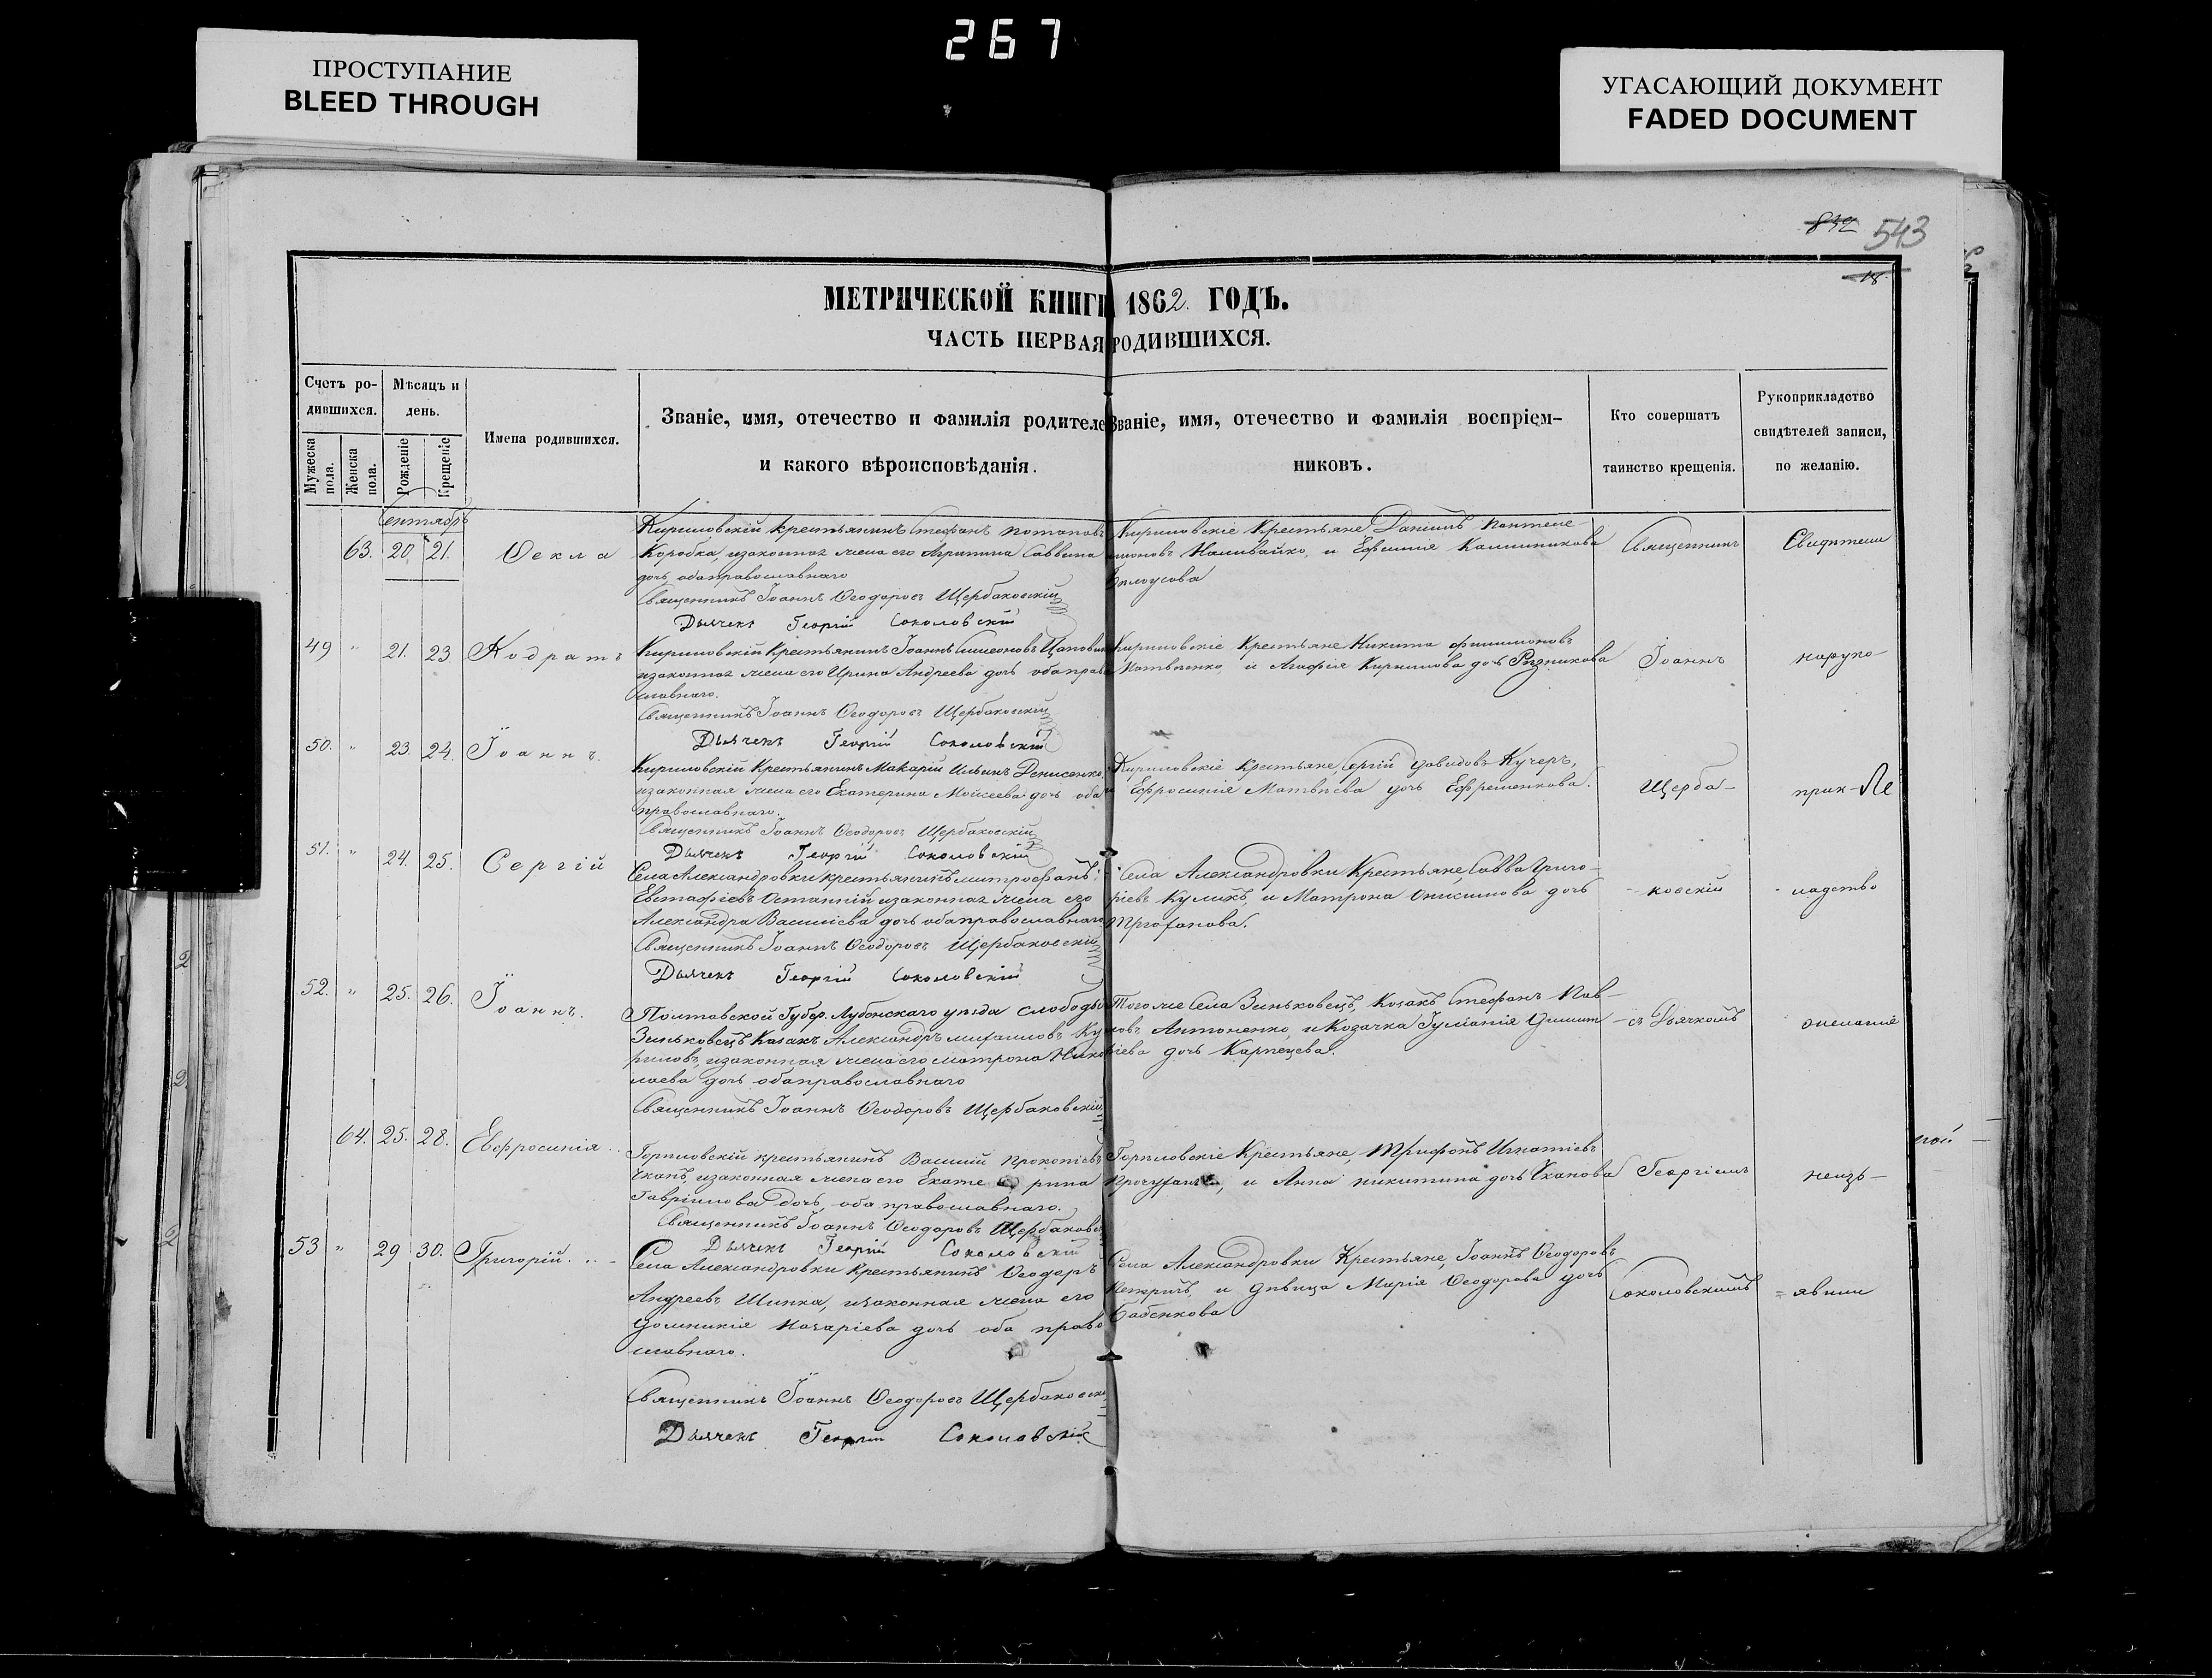 267
ПРОСТУПАНИЕ
BLEED THROUGH
УГАСАЮЩИЙ ДОКУМЕНТ
FADED DOCUMENT
832 543
18
МЕТРИЧЕСКОЙ КНИГИ 1862. ГОДЪ.
ЧАСТЬ ПЕРВАЯ РОДИВШИХСЯ.
Счетъ ро-
дившихся.
Мужеска пола.
Женска пола.
Мѣсяцъ и
день.
Рожденіе
Крещеніе
Имена родившихся.
Званіе, имя, отечество и фамилія родителе
и какого вѣроисповѣданія.
Званіе, имя, отечество и фамилія воспріем-
никовъ.
Кто совершатъ
таинство крещенія.
Рукоприкладство
свидѣтелей записи,
по желанію.
Сентябрь
63. 20 21. Ѳекла
Кириловскій крестьянинъ Стефанъ Потаповъ
Коробка, изаконная жена его Агрипина Саввина
дочь оба православнаго
Священникъ Іоаннъ Ѳеодоровъ Щербаковскій
Дьячекъ Георгій Соколовскій
Кириловскіе Крестьяне Даніилъ Пантеле
имоновъ Наливайко, и Ефимія Калинникова
Бѣлоусова
Священникъ
Свидѣтели
49 " 21. 23. Кодратъ
Кириловскій Крестьянинъ Іоаннъ Симеоновъ
изаконная жена его Ирина Андреева дочь оба право
славнаго.
Священникъ Іоаннъ Ѳеодоровъ Щербаковскій
Дьячекъ Георгій Соколовскій
Кириловскіе Крестьяне Никита Филимоновъ
Матвѣенко, и Агафія Кирилова дочь Рѣзникова
Іоаннъ
наруко-
50. " 23 24. Іоаннъ.
Кириловскій Крестьянинъ Макарій Ильинъ Денисенко,
изаконная жена его Екатерина Моисеева дочь оба
православнаго.
Священникъ Іоаннъ Ѳеодоровъ Щербаковскій
Дьячекъ Георгій Соколовскій
Кириловскіе Крестьяне, Сергій Давидовъ Кучеръ,
и Ефросинія Матвѣева дочь Ефременкова.
Щерба-
прик-
51. " 24. 25. Сергій
Села Александровки крестьянинъ Митрофанъ
Евстафіевъ Остапній изаконная жена его
Александра Василіева дочь оба православнаго
Священникъ Іоаннъ Ѳеодоровъ Щербаковскій
Дьячекъ Георгій Соколовскій
Села Александровки Крестьяне, Савва Григо-
ріевъ Куликъ, и Матрона Онисимова дочь
- ковскій
- ладство
52. " 25. 26. Іоаннъ.
Полтавской Губер. Лубенскаго уѣзда слободы
Зиньковецъ Казакъ Александръ Михаиловъ Ку
риловъ, изаконная жена его Матрона Нико
лаева дочь оба православнаго
Священникъ Іоаннъ Ѳеодоровъ Щербаковскій
Того же Села Зиньковецъ, Козакъ Стефанъ Пав-
ловъ Антоненко, и Козачка Іуліанія Димит
ріева дочь Карпецева.
- съ Дьячкомъ
желанія
64. 25. 28. Евфросинія
Гориловскій крестьянинъ Василій Прокопіевъ
изаконная жена его Екатерина
Гавріилова дочь, оба православнаго.
Священникъ Іоаннъ Ѳеодоровъ Щербаковск
Дьячекъ Георгій Соколовскій
Гориловскіе Крестьяне, Трифонъ Игнатіевъ
и Анна Никитина дочь
Георгіемъ
неизъ-
53 " 29 30. Григорій.
Села Александровки крестьянинъ Ѳеодоръ
Андреевъ Шипка, изаконная жена его
Домникія Назаріева дочь оба право
славнаго.
Священникъ Іоаннъ Ѳеодоровъ Щербаковск
Дьячекъ Георгій Соколовскій
Села Александровки Крестьяне, Іоаннъ Ѳеодоровъ
и дѣвица Марія Ѳеодорова дочь
Бабенкова
Соколовскимъ
= явили